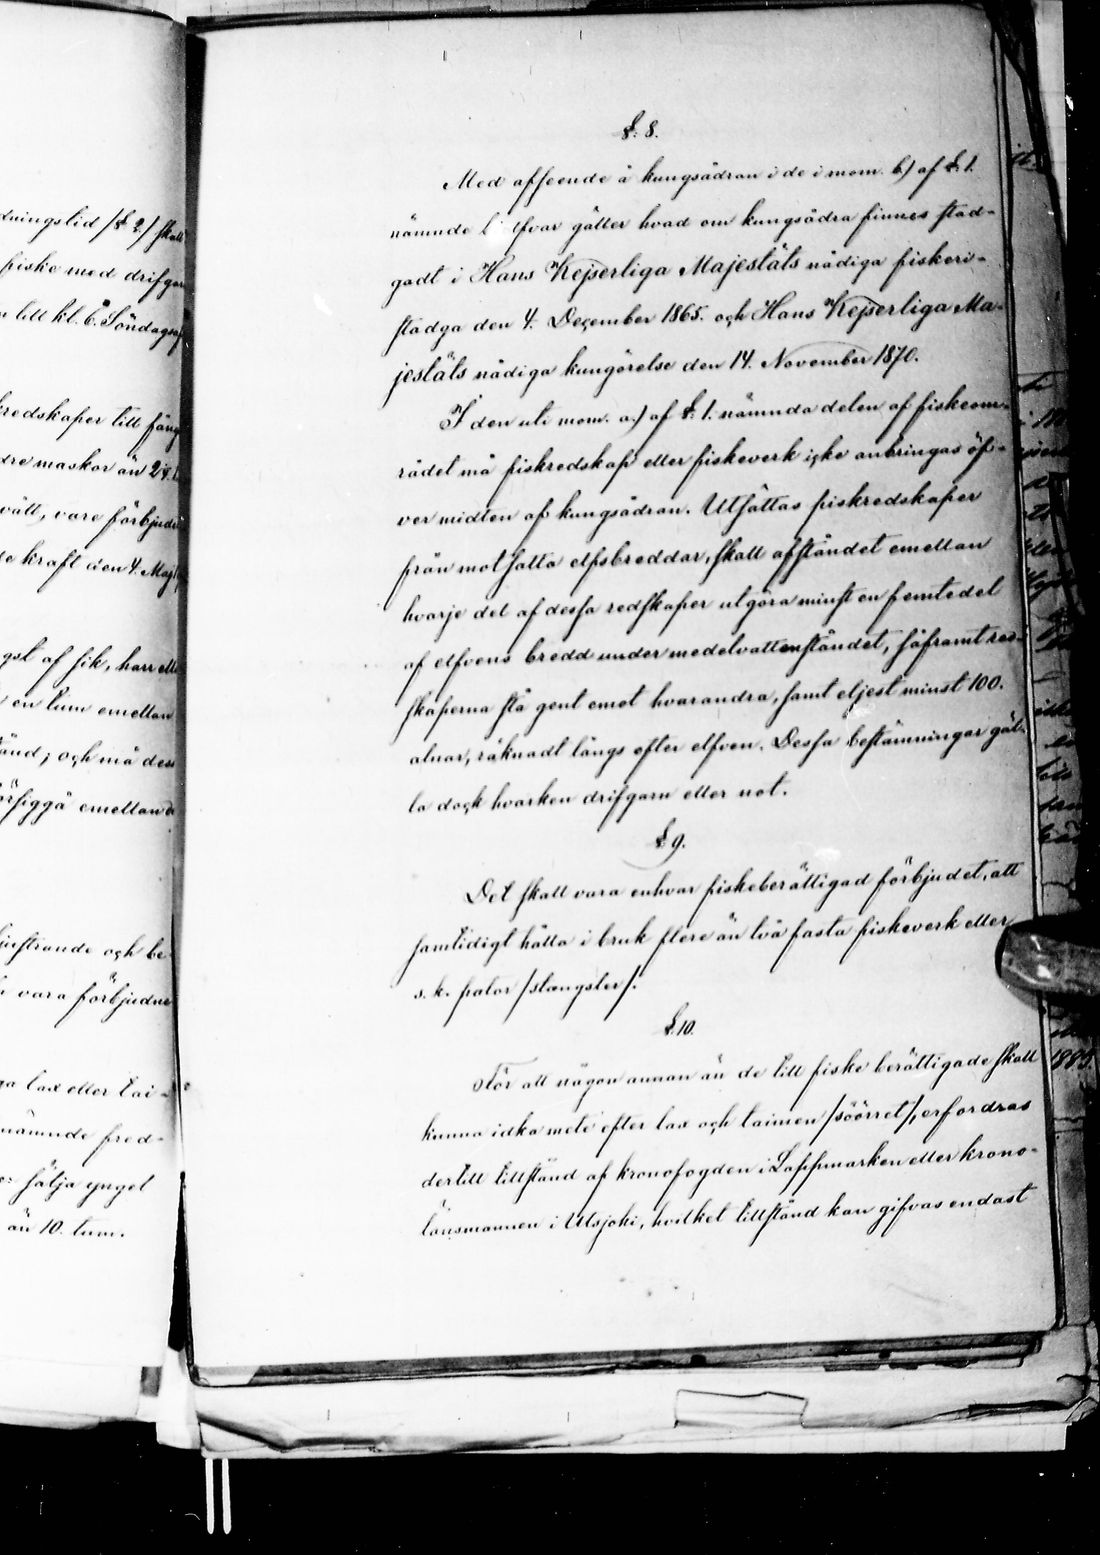 dningstid /§ 2/ skall
fiske med drifgarn
till kl. 6 Söndags
redskaper till fång
dre maskor än 2¼
vått, vare förbjud
kraft den 4. Maj
gst af sik, harr elle
en tum emellan
ånd; och må dess
emellan
och be-
vara förbjudne
ga lax eller tai-
nämnde fred-
sälja yngel
än 10. tum.
§. 8.
Med afseende å kungsådran i de i mom. b.) af §. 1.
nämnde elfvar gäller hvad om kungsådra finnes stad-
gadt i Hans Kejserliga Majestäts nådiga fiskeri-
stadga den 4. December 1865. och Hans Kejserliga Ma-
jestäts nådiga kungörelse den 14. November 1870.
I den uti mom. a.) af §. 1. nämnda delen af fiskeom-
rådet må fiskredskap eller fiskeverk icke anbringas öf-
ver midten af kungsådran. Utsättas fiskredskaper
från motsatta elfsbreddar, skall afståndet emellan
hvarje del af dessa redskaper utgöra minst en femtedel
af elfvens bredd under medelvattenståndet, såframt red-
skaperna stå gent emot hvarandra, samt eljest minst 100.
alnar, räknadt längs efter elfven. Dessa bestämningar gäl-
la dock hvarken drifgarn eller not.
§ 9.
Det skall vara enhvar fiskeberättigad förbjudet, att
samtidigt hålla i bruk flere än två fasta fiskeverk eller
s. k. pator /stængsler/.
§. 10.
För att någon annan än de till fiske berättigade skall
kunna idka mete efter lax och taimen /söörret/, erfordras
dertill tillstånd af kronofogden i Lappmarken eller krono-
länsmannen i Utsjoki, hvilket tillstånd kan gifvas endast